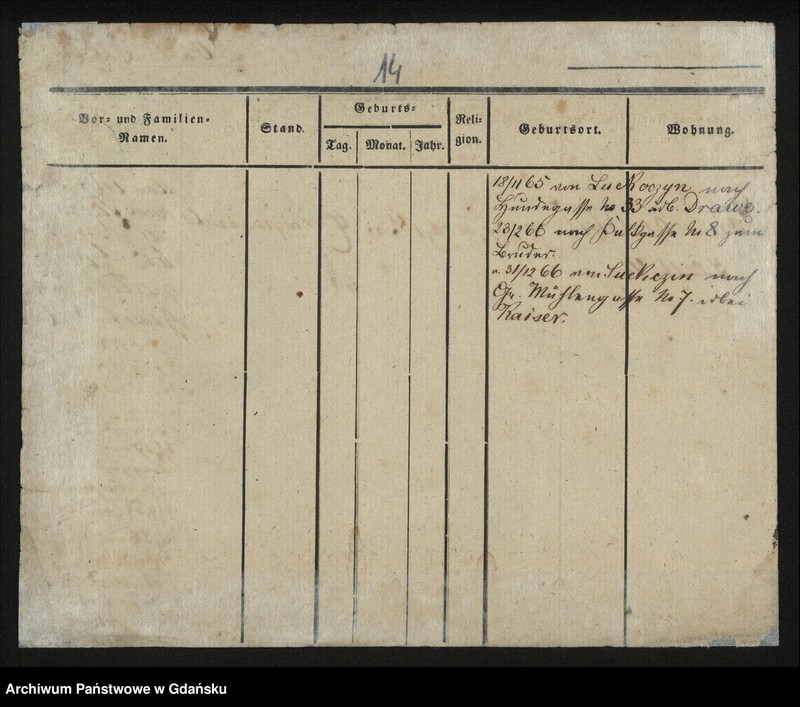 14
Vor- und Familien-Namen.
Stand.
Geburts-
Tag.
Monat.
Jahr.
Reli-
gion.
Geburtsort.
Wohnung.
18/11 65 von Luckoczyn nach
Hundegasse No 33 Drawe.
23/2 66 nach gasse No 8 zum
Bruder.
31/12 66 von Suckczin nach
Gr. Mühlengasse No 7. bei
Kaiser.
Archiwum Państwowe w Gdańsku